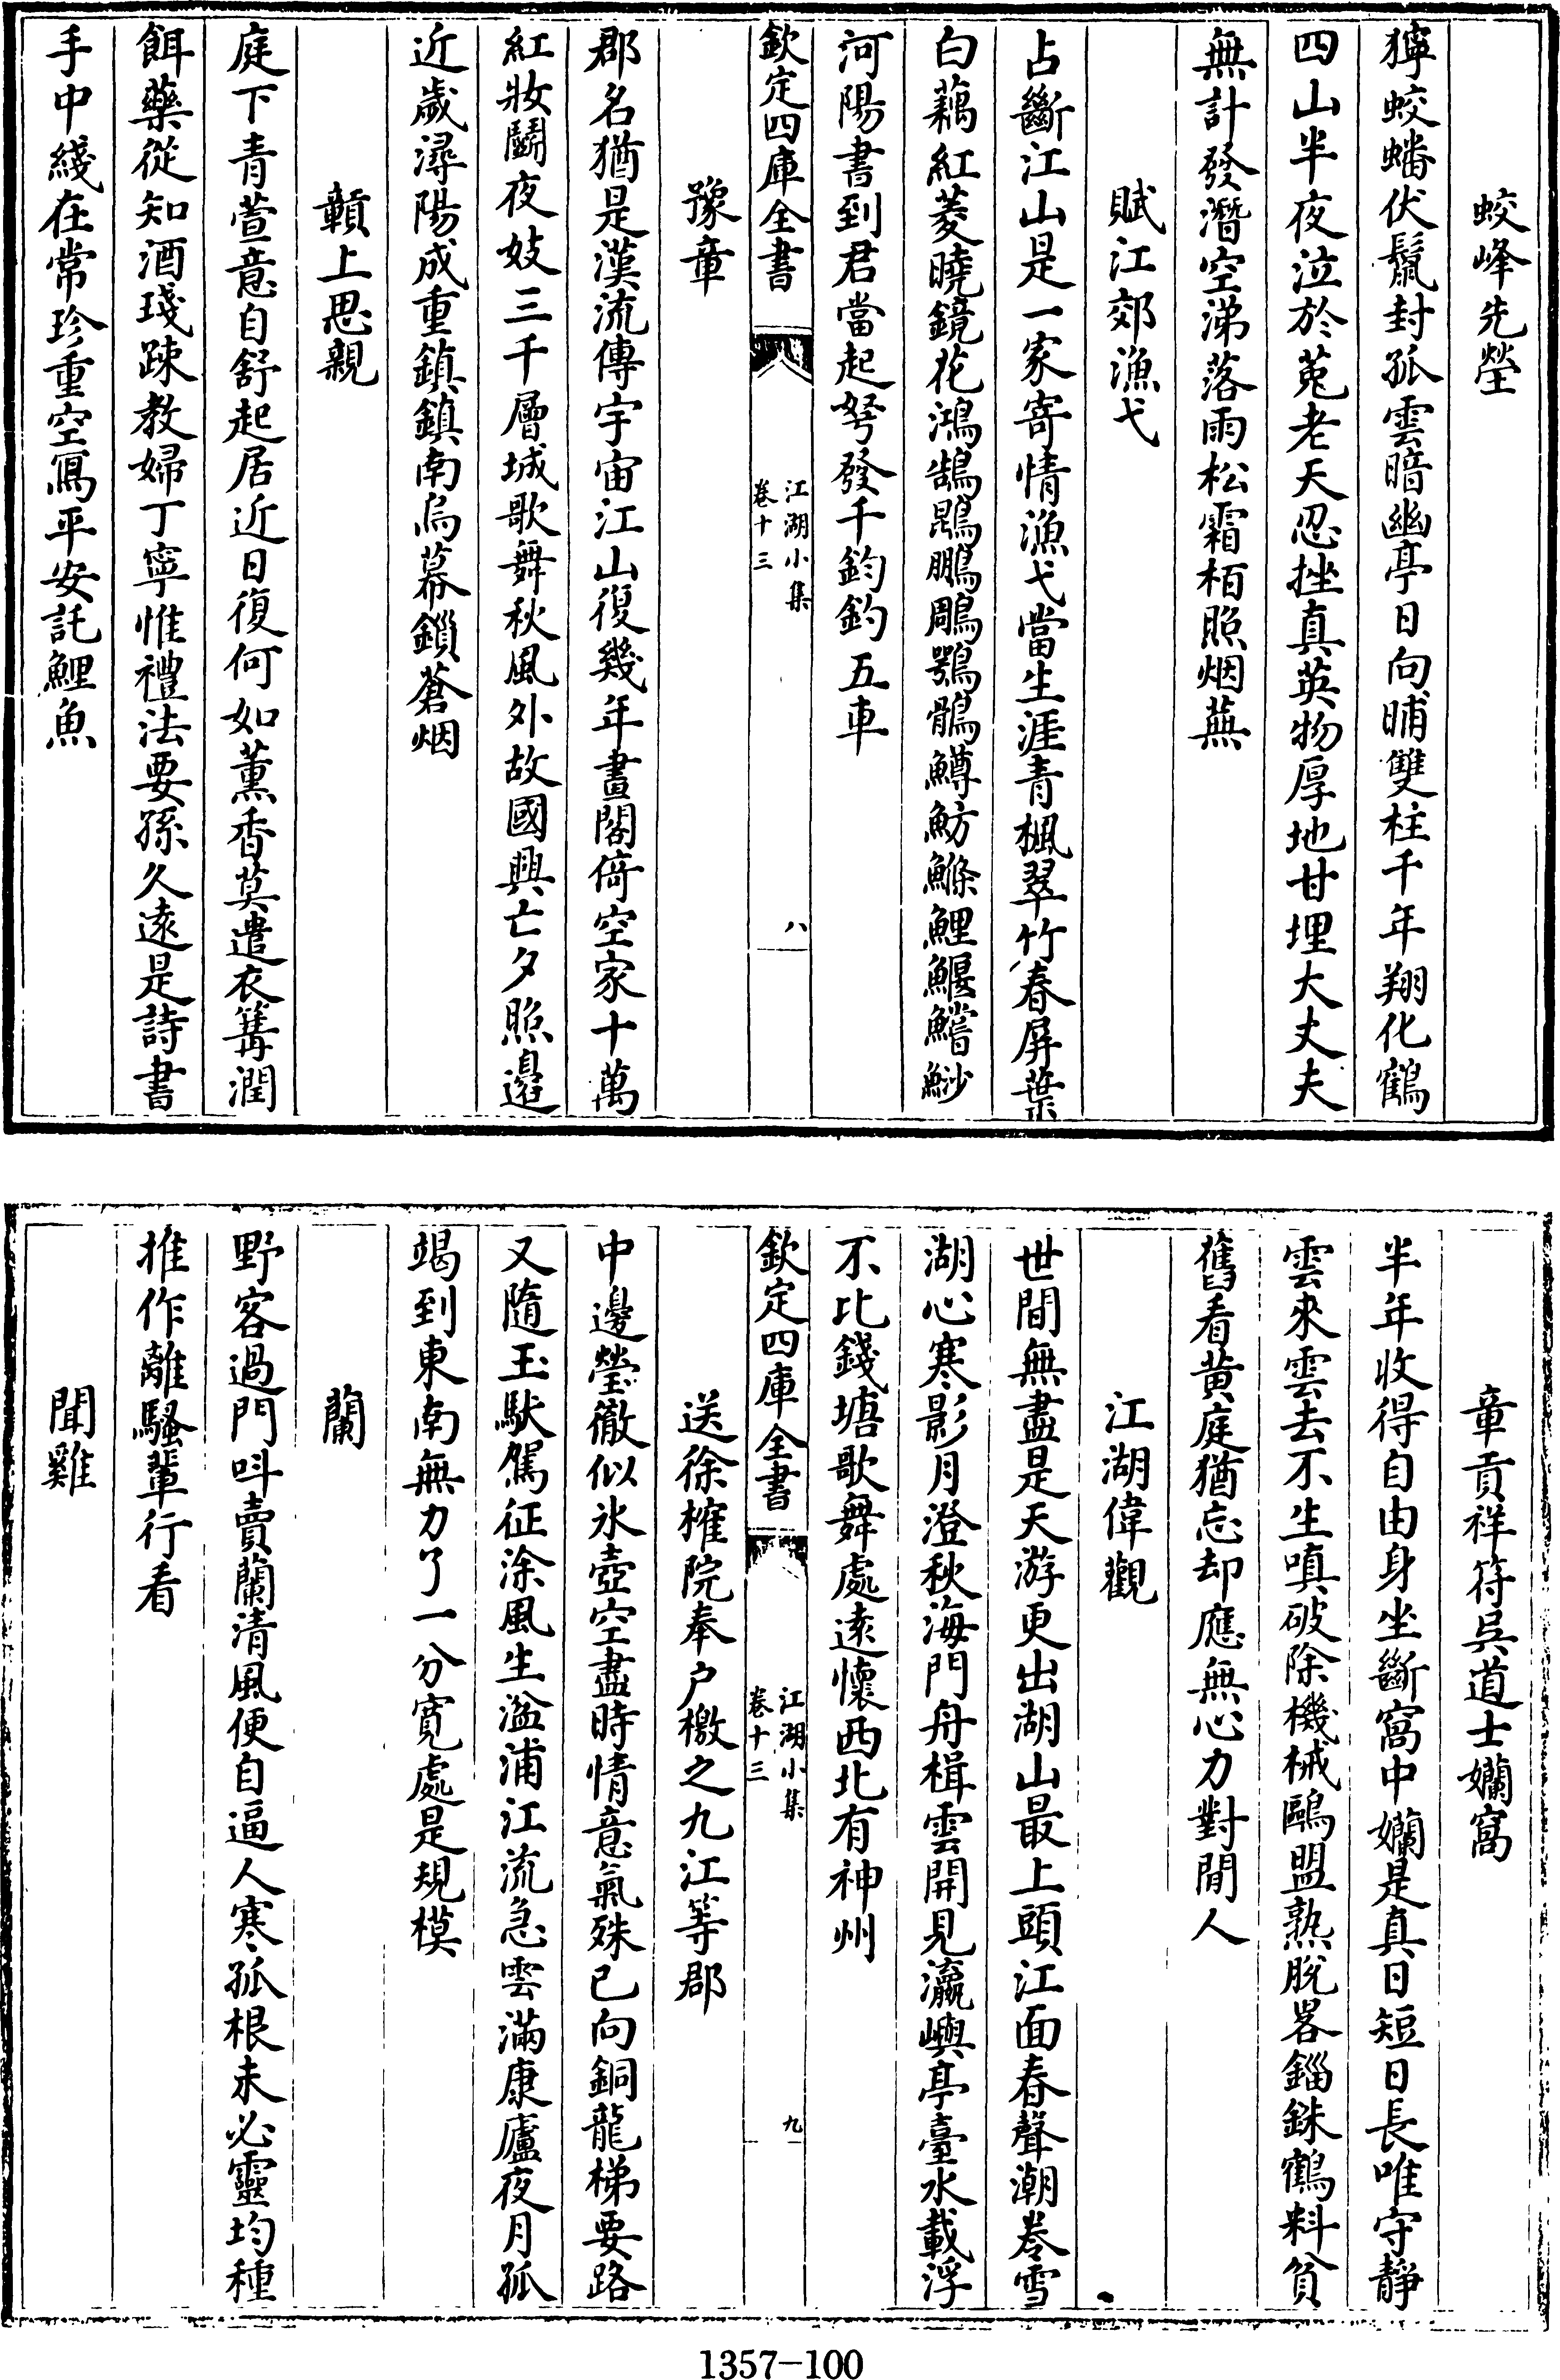 蛟峰先塋
獰蛟蟠伏鬛封孤雲暗幽亭日向晡雙柱千年翔化鶴
四山半夜泣於菟老天忍挫真英物厚地甘埋大丈夫
無計發潛空涕落雨松霜栢照烟蕪
賦江郊漁弋
占斷江山是一家寄情漁弋當生涯青楓翠竹春屏葉
白藕紅菱曉鏡花鴻鵠鵾鵬鵰鶚鶻鱒魴鰷鯉鰋鱨魦
河陽書到君當起弩發千鈞釣五車
欽定四庫全書
江湖小集
卷十三
八
豫章
郡名猶是漢流傳宇宙江山復幾年畫閣倚空家十萬
紅妝鬭夜妓三千層城歌舞秋風外故國興亡夕照邊
近歲潯陽成重鎮鎮南烏幕鎖蒼烟
贑上思親
庭下青萱意自舒起居近日復何如薰香莫遣衣篝潤
餌藥從知酒琖踈教婦丁寧惟禮法要孫久遠是詩書
手中綫在常珍重空寫平安託鯉魚
章貢祥符吳道士嬾窩
半年收得自由身坐斷窩中嬾是真日短日長唯守靜
雲來雲去不生嗔破除機械鷗盟熟脫畧錙銖鶴料貧
舊看黃庭猶忘却應無心力對閒人
江湖偉觀
世間無盡是天游更出湖山最上頭江面春聲潮卷雪
湖心寒影月澄秋海門舟楫雲開見瀛嶼亭臺水載浮
不比錢塘歌舞處遠懷西北有神州
欽定四庫全書
江湖小集
卷十三
九
送徐榷院奉户檄之九江等郡
中邊瑩徹似氷壺空盡時情意氣殊已向銅龍梯要路
又隨玉駃駕征涂風生湓浦江流急雲滿康廬夜月孤
竭到東南無力了一分寛處是規模
蘭
野客過門呌賣蘭清風便自逼人寒孤根未必靈均種
推作離騷輩行看
聞雞
1357-100